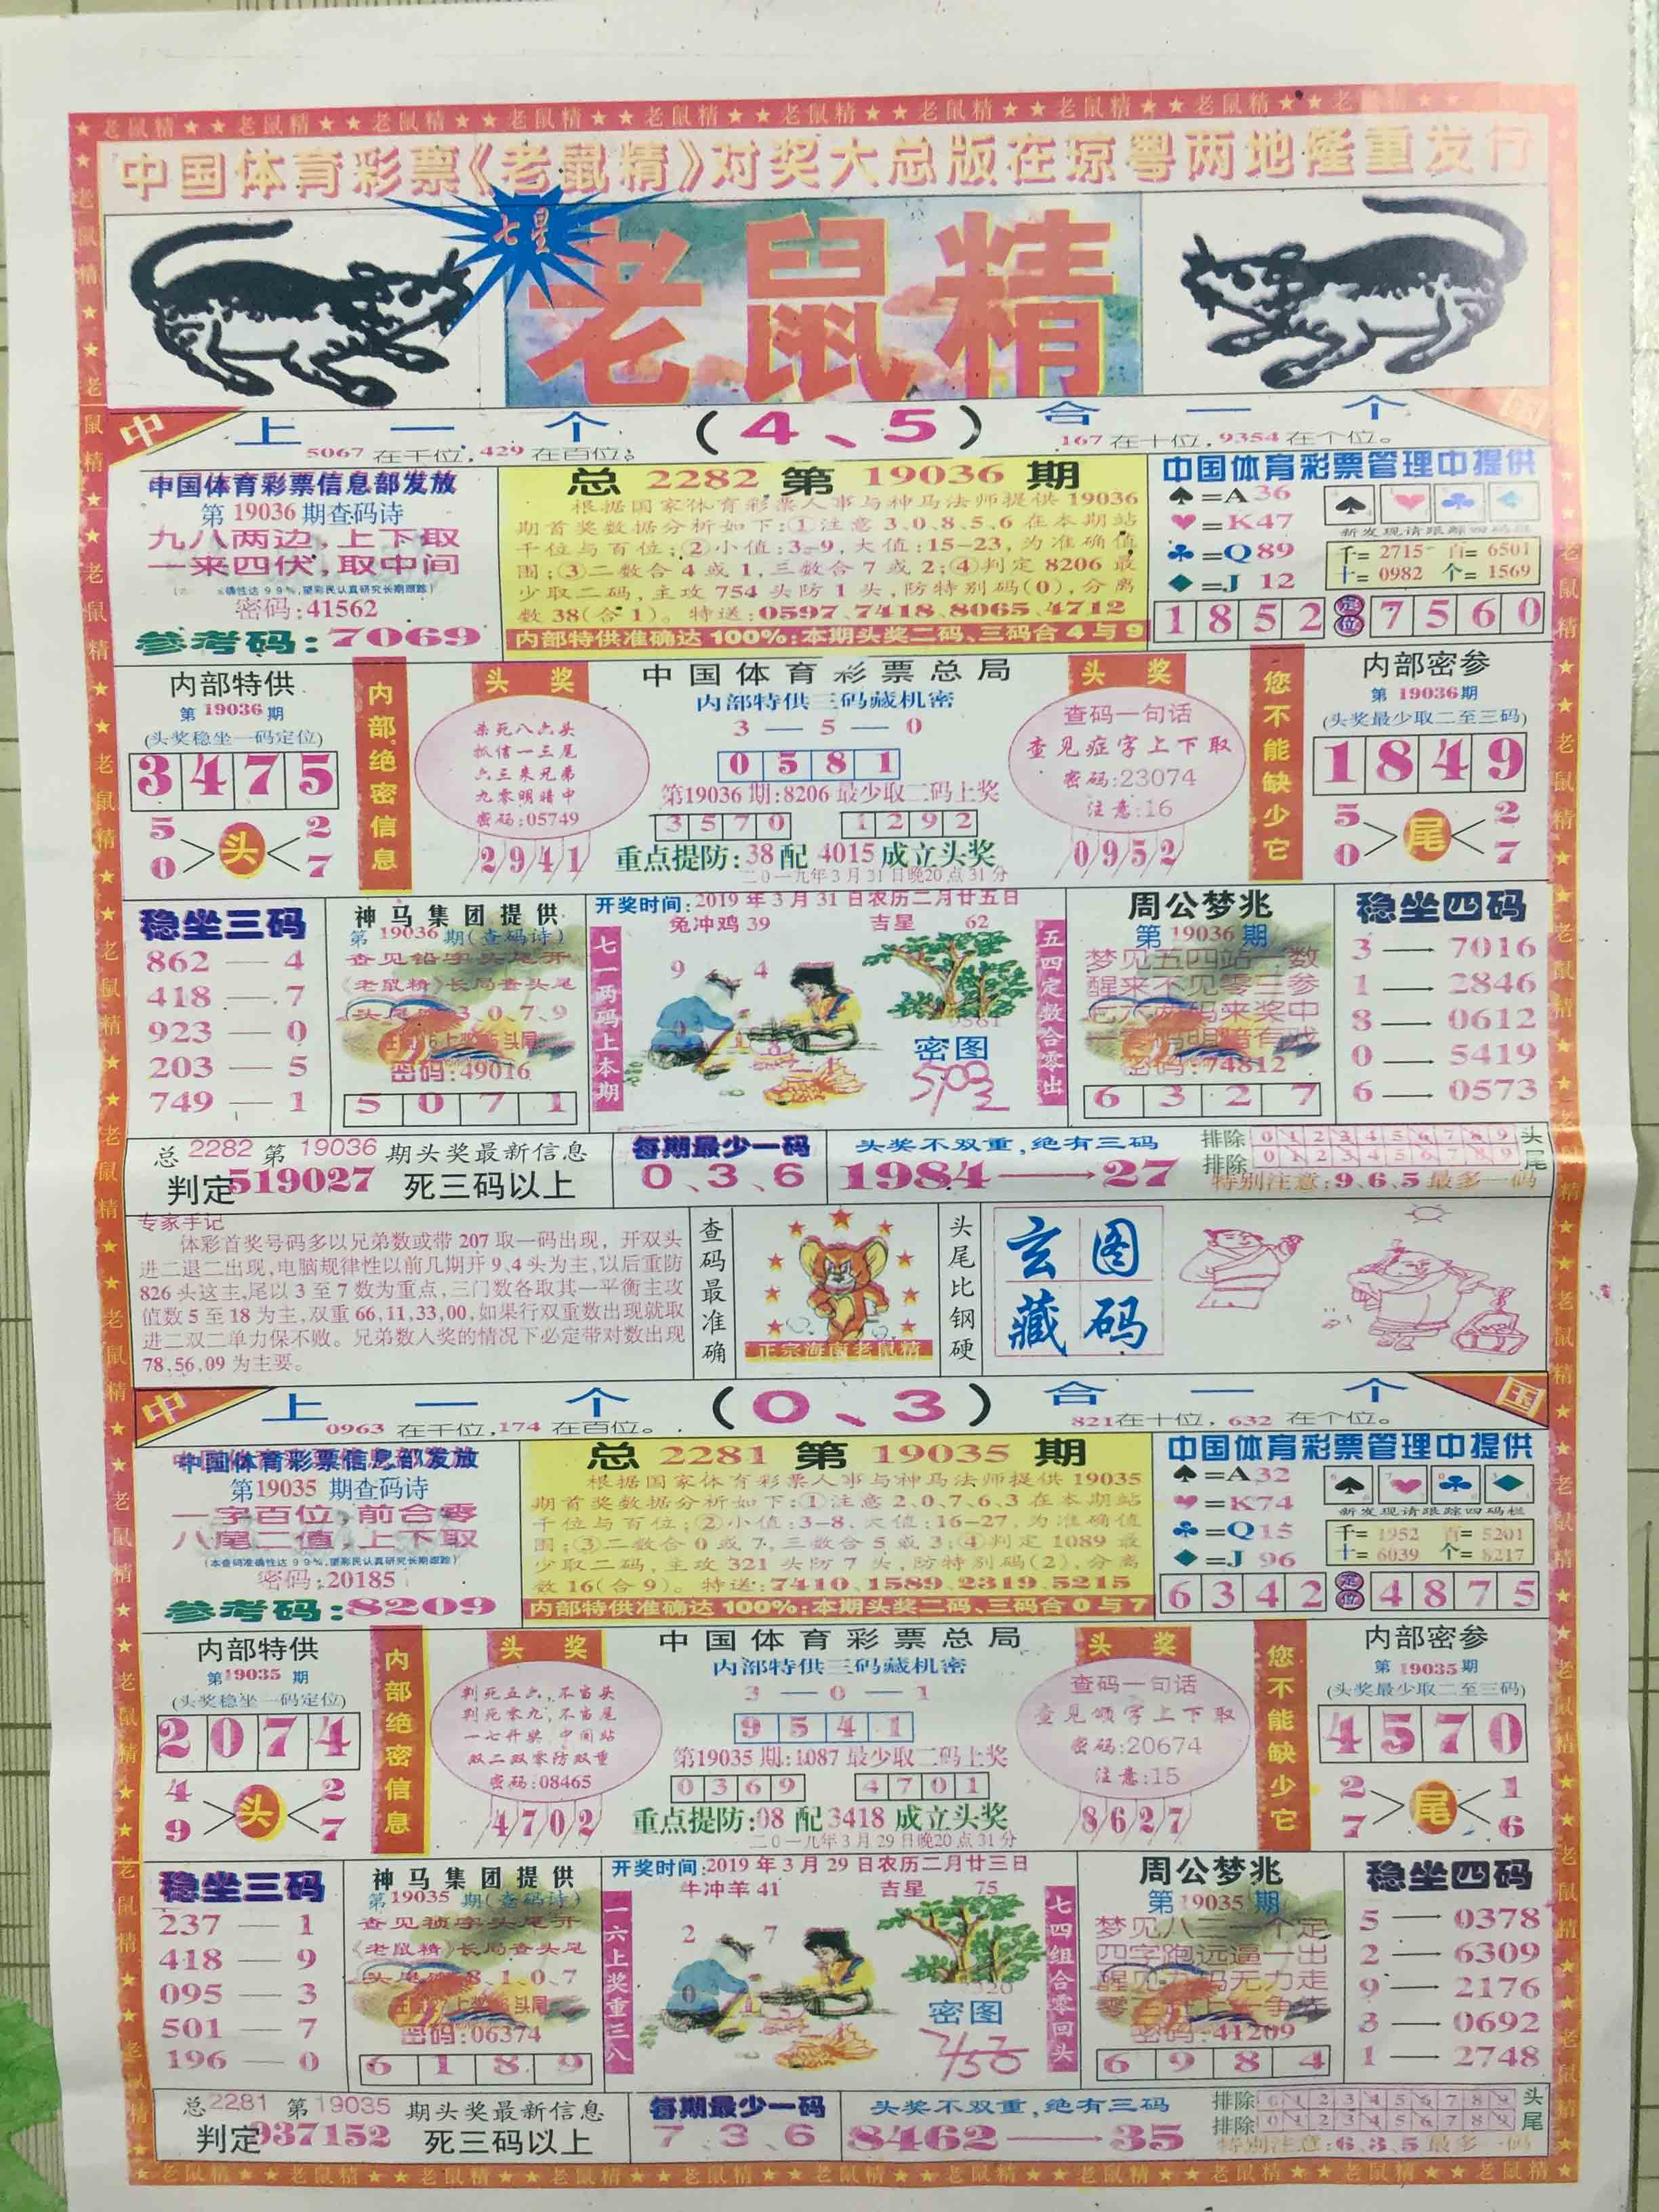 中国体育彩票《老鼠精》对奖大总版在琼粤两地隆重发行
七星
老鼠精
中
上一个(4、5)合一个
国
5067在千位,429在百位;
167在十位,9354在个位。
中国体育彩票信息部发放
第19036期查码诗
九八两边,上下取
一来四伏,取中间
密码:41562
参考码:7069
总2282第19036期
根据国家体育彩票人事与神马法师提供19036
期首奖数据分析如下:①注意3、0、8、5、6在本期站
千位与百位;②小值:3-9,大值:15-23,为准确值
围;③二数合4或1,三数合7或2;④判定8206最
少取二码,主攻754头防1头,防特别码(0),分离
数38(合1)。特送:0597、7418、8065、4712
内部特供准确达100%:本期头奖二码、三码合4与9
中国体育彩票管理中提供
♠=A36
♥=K47
♣=Q89
♦=J 12
新发现请跟踪四码栏
千=2715 百=6501
十=0982 个=1569
1852 定位 7560
内部特供
第19036期
(头奖稳坐一码定位)
3475
5 2
头
0 7
内部绝密信息
头奖
杀死八六头
抓信一三尾
六三来兄弟
九零明暗中
密码:05749
2941
中国体育彩票总局
内部特供三码藏机密
3—5—0
0581
第19036期:8206最少取二码上奖
3570 1292
重点提防:38配4015成立头奖
二0一九年3月31日晚20点31分
头奖
查码一句话
查见症字上下取
密码:23074
注意:16
0952
您不能缺少它
内部密参
第19036期
(头奖最少取二至三码)
1849
5 2
尾
0 7
稳坐三码
862—4
418—7
923—0
203—5
749—1
神马集团提供
第19036期(查码诗)
查见铅字头尾开
《老鼠精》长局查头尾
3、0、7、9
密码:49016
5071
开奖时间:2019年3月31日农历二月廿五日
兔冲鸡39 吉星 62
七一两码上本期
9 4
密图
五四定数合零出
周公梦兆
第19036期
梦见五四站一数
醒来不见零三参
密码:74812
6327
稳坐四码
3—7016
1—2846
8—0612
0—5419
6—0573
总2282第19036期头奖最新信息
判定519027死三码以上
每期最少一码
0、3、6
头奖不双重,绝有三码
1984→27
排除0 1 2 3 4 5 6 7 8 9头
排除0 1 2 3 4 5 6 7 8 9尾
特别注意:9、6、5最多一码
专家手记
体彩首奖号码多以兄弟数或带207取一码出现,开双头
进二退二出现,电脑规律性以前几期开9、4头为主,以后重防
826头这主,尾以3至7数为重点,三门数各取其一平衡主攻
值数5至18为主,双重66,11,33,00,如果行双重数出现就取
进二双二单力保不败。兄弟数入奖的情况下必定带对数出现
78,56,09为主要。
查码最准确
正宗海南老鼠精
头尾比钢硬
玄图
藏码
中
上一个(0、3)合一个
国
0963在千位,174在百位。
821在十位,632在个位。
中国体育彩票信息部发放
第19035期查码诗
一字百位,前合零
八尾二值,上下取
(本查码准确性达99%,望彩民认真研究长期跟踪)
密码:20185
参考码:8209
总2281第19035期
根据国家体育彩票人事与神马法师提供19035
期首奖数据分析如下:①注意2、0、7、6、3在本期站
千位与百位;②小值:3-8、大值:16-27,为准确值
围;③二数合0或7,三数合5或3;④判定1089最
少取二码,主攻321头防7头,防特别码(2),分离
数16(合9)。特送:7410、1589、2319、5215
内部特供准确达100%:本期头奖二码、三码合0与7
中国体育彩票管理中提供
♠=A32
♥=K74
♣=Q15
♦=J 96
新发现请跟踪四码栏
千=1952 百=5201
十=6039 个=8217
6342 定位 4875
内部特供
第19035期
(头奖稳坐一码定位)
2074
4 2
头
9 7
内部绝密信息
头奖
判死五六,不当头
判死零九,不当尾
一七开奖,中间站
双二双零防双重
密码:08465
4702
中国体育彩票总局
内部特供三码藏机密
3—0—1
9541
第19035期:1087最少取二码上奖
0369 4701
重点提防:08配3418成立头奖
二0一九年3月29日晚20点31分
头奖
查码一句话
查见颂字上下取
密码:20674
注意:15
8627
您不能缺少它
内部密参
第19035期
(头奖最少取二至三码)
4570
2 1
尾
7 6
稳坐三码
237—1
418—9
095—3
501—7
196—0
神马集团提供
第19035期(查码诗)
查见祯字头尾开
《老鼠精》长局查头尾
8、1、0、7
密码:06374
6189
开奖时间:2019年3月29日农历二月廿三日
牛冲羊41 吉星 75
一六上奖重三八
2 7
密图
七四组合零回头
周公梦兆
第19035期
梦见八二一个定
四字跑远逼一出
密码:41209
6984
稳坐四码
5—0378
2—6309
9—2176
3—0692
1—2748
总2281第19035期头奖最新信息
判定937152死三码以上
每期最少一码
7、3、6
头奖不双重,绝有三码
8462—35
排除0 1 2 3 4 5 6 7 8 9头
排除0 1 2 3 4 5 6 7 8 9尾
特别注意:6、3、5最多一码